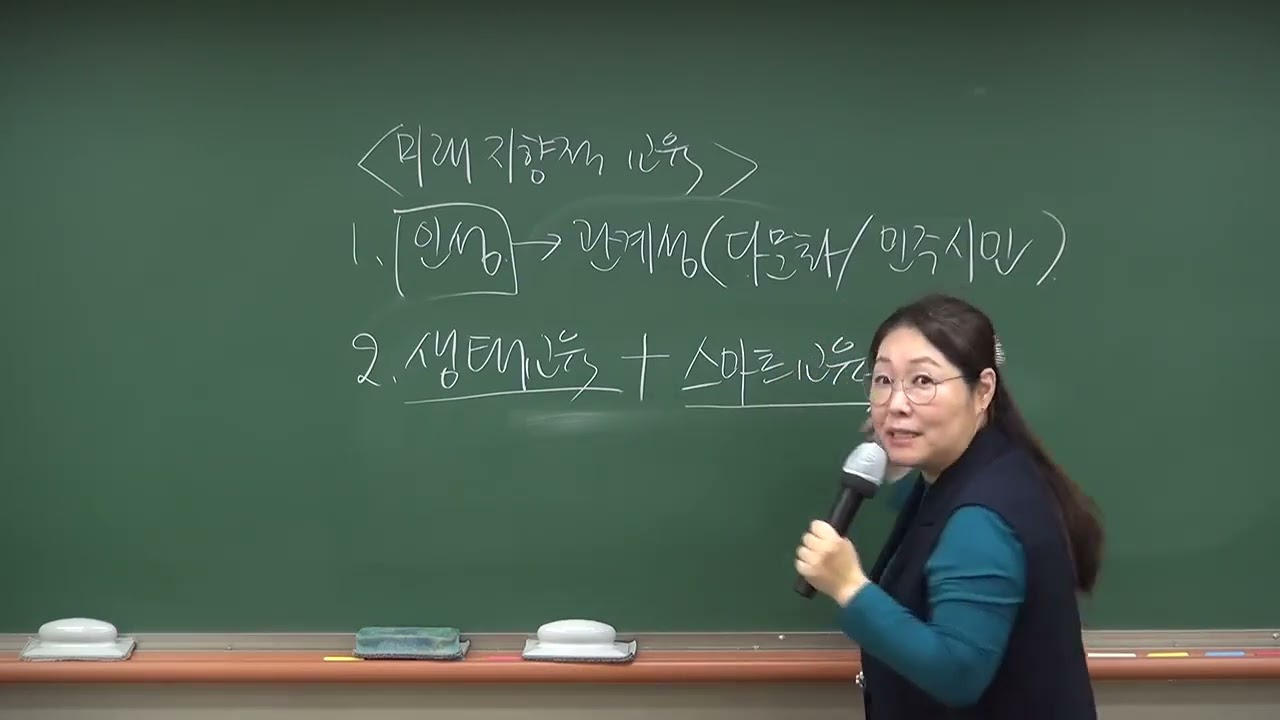 <미래 지향적 교육>
1. 인성 → 관계성(다문화/민주시민)
2. 생태교육 + 스마트교육